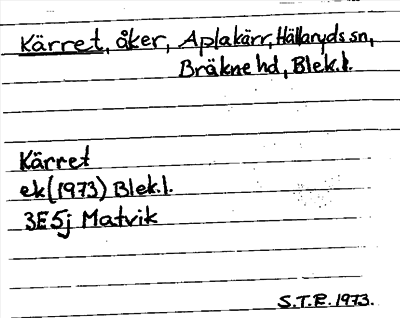 Kärret, åker, Aplakärr, Hällaryds sn,
Bräkne hd, Blek.l.
Kärret
ek (1973) Blek.l.
3E5j Matvik
S.T.E. 1973.